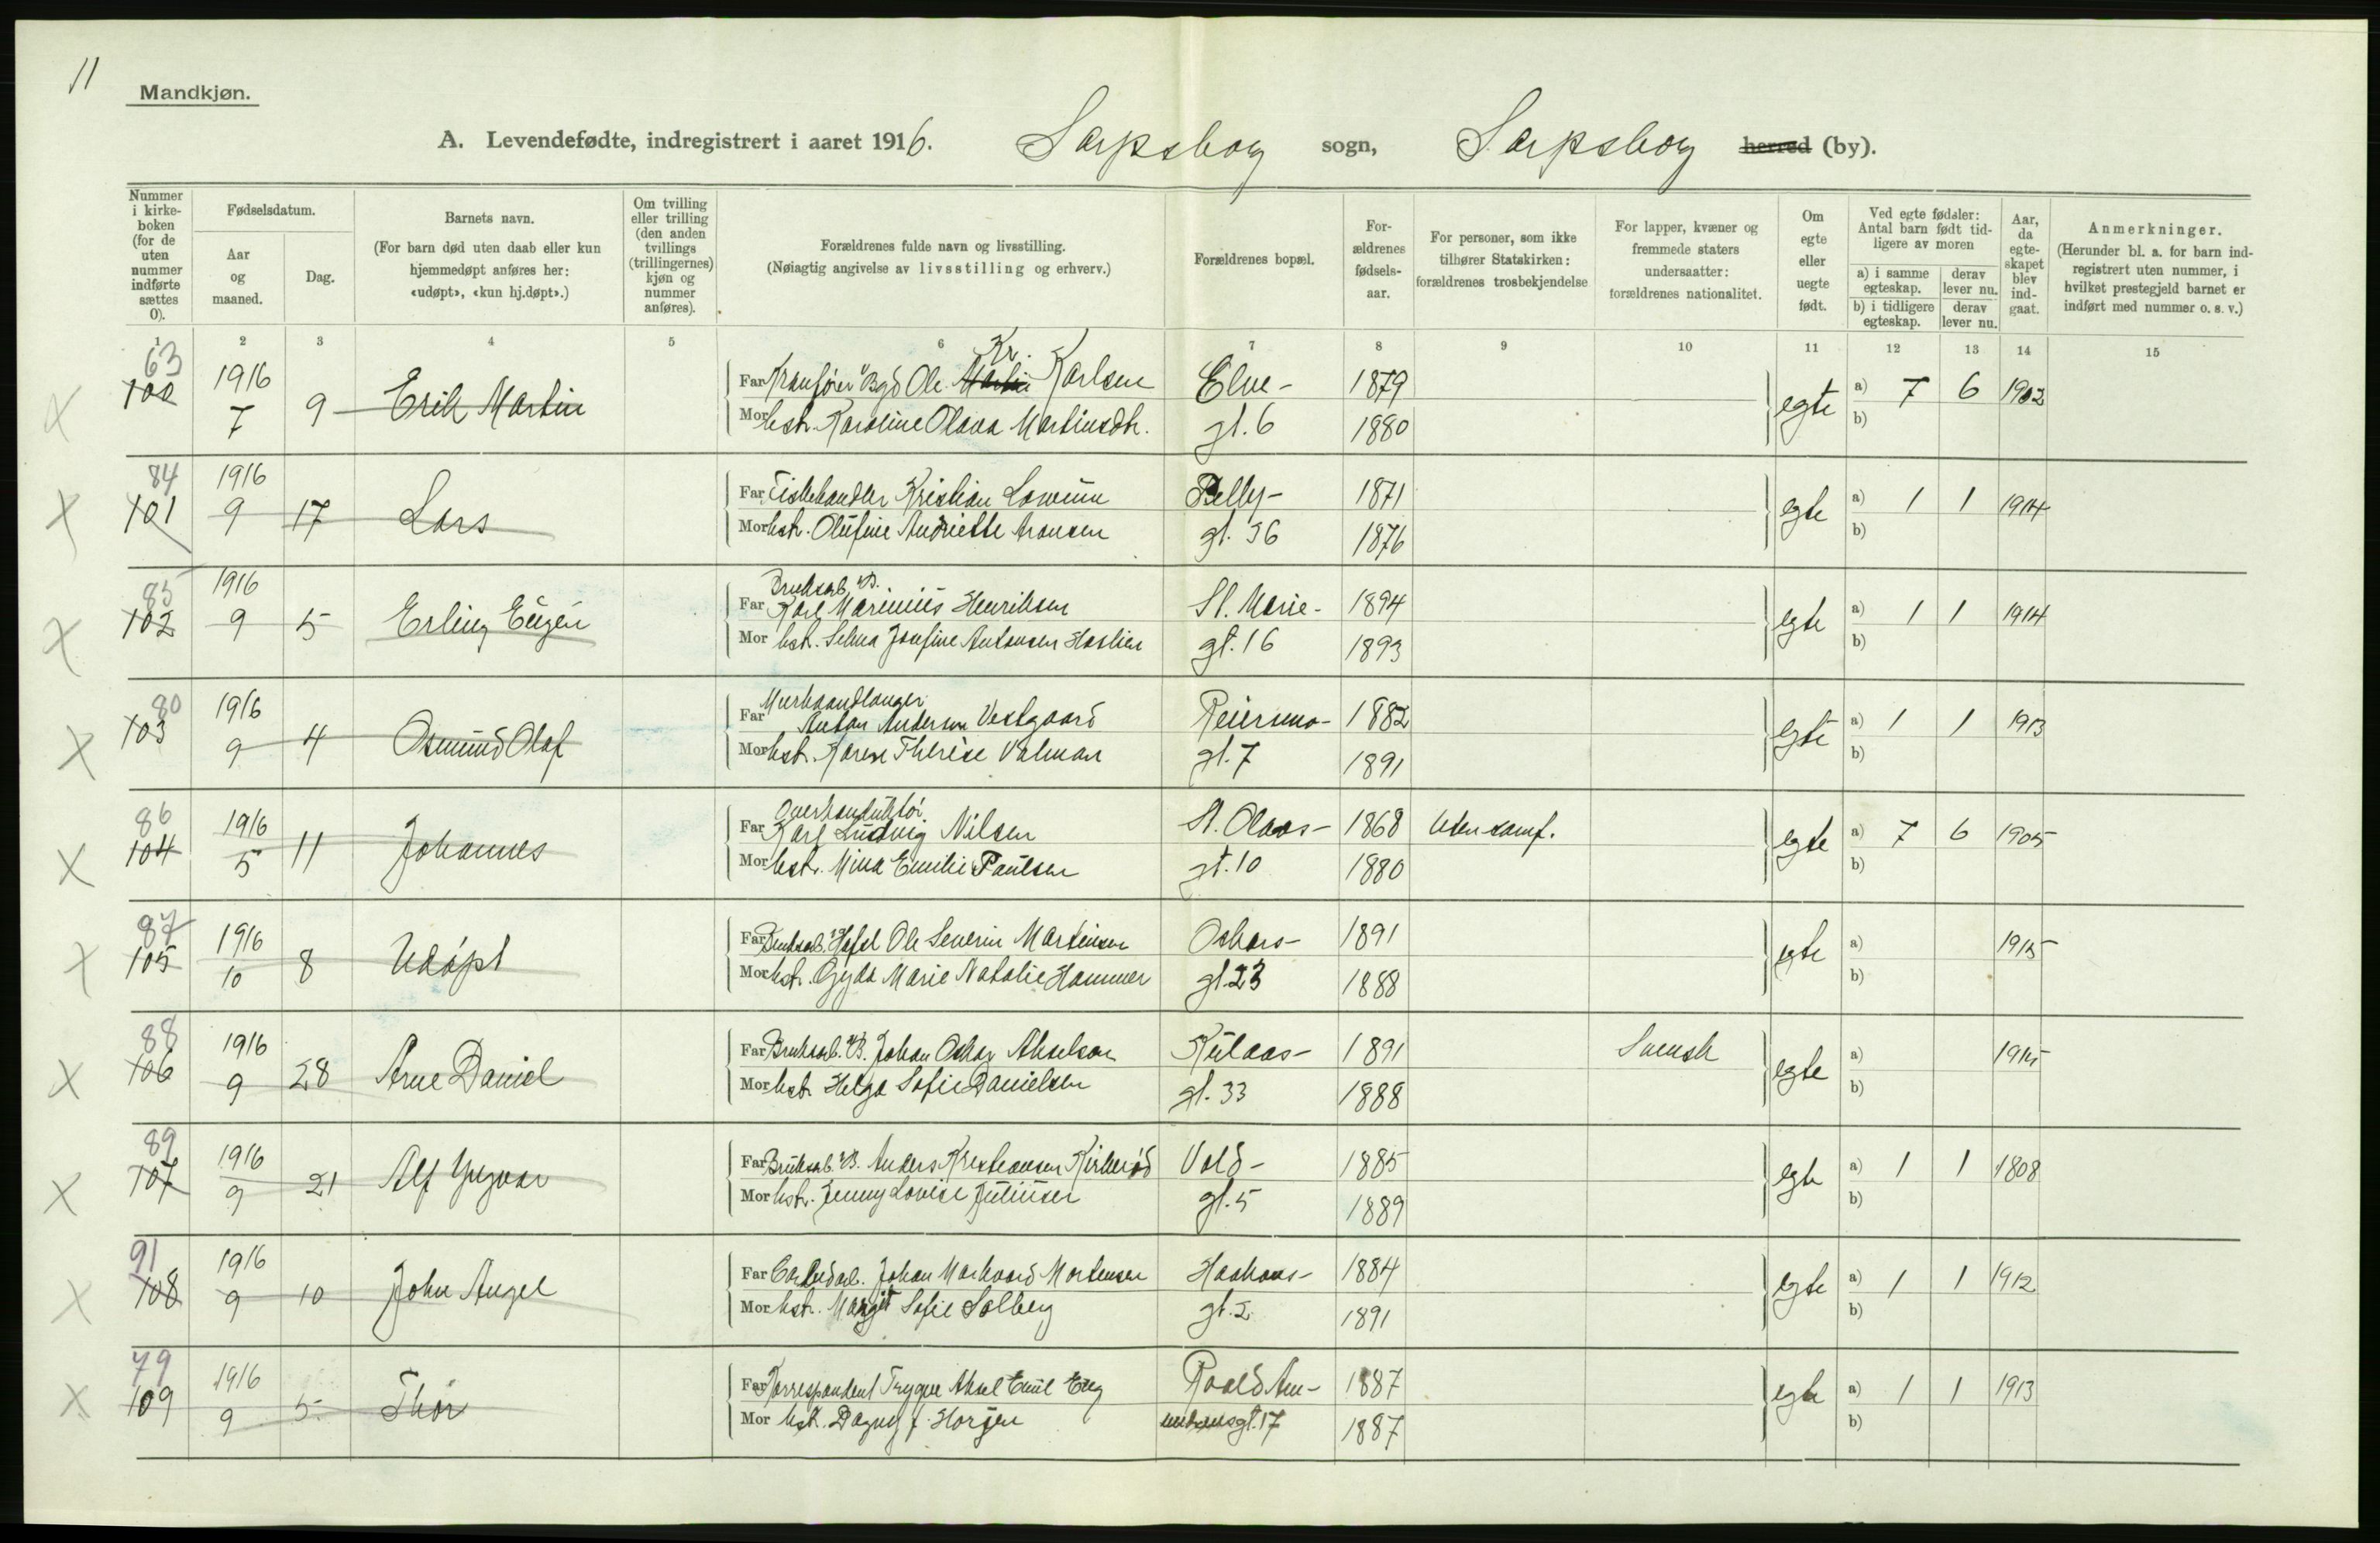 11
Mandkjøn.
A. Levendefødte, indregistrert i aaret 1916. Sarpsborg sogn, Sarpsborg herred (by).
Nummer i kirkeboken (for de uten nummer indførte sættes 0).
Fødselsdatum.
Aar og maaned.
Dag.
Barnets navn.
(For barn død uten daab eller kun hjemmedøpt anføres her: «udøpt», «kun hj.døpt».)
Om tvilling eller trilling (den anden tvillings (trillingernes) kjøn og nummer anføres).
Forældrenes fulde navn og livsstilling.
(Nøiagtig angivelse av livsstilling og erhverv.)
Forældrenes bopæl.
Forældrenes fødselsaar.
For personer, som ikke tilhører Statskirken: forældrenes trosbekjendelse
For lapper, kvæner og fremmede staters undersaatter: forældrenes nationalitet.
Om egte eller uegte født.
Ved egte fødsler: Antal barn født tidligere av moren
a) i samme egteskap. derav lever nu.
b) i tidligere egteskap. derav lever nu.
Aar, da egteskapet blev indgaat.
Anmerkninger.
(Herunder bl. a. for barn indregistrert uten nummer, i hvilket prestegjeld barnet er indført med nummer o. s. v.)
1 2 3 4 5 6 7 8 9 10 11 12 13 14 15
63
100 1916 7 9 Erik Martin
Far Ole Martin Kr. Karlsen Elve- 1879 egte a) 7 6 1902
Mor hst. Karoline Olava Martinsdtr. gt. 6 1880 b)
84
101 1916 9 17 Lars
Far Fiskehandler Kristian 1871 egte a) 1 1 1914
Mor hst. Olufine Andriette Aronsen gt. 36 1876 b)
85
102 1916 9 5 Erling Eugen
Far Bruksarb. Karl Marinius Henriksen St. Marie- 1894 egte a) 1 1 1914
Mor hst. Selma Josefine Antonsen gt. 16 1893 b)
80
103 1916 9 4 Osmund Olaf
Far Murhaandlanger Anton Andersen Vestgaard 1882 egte a) 1 1 1913
Mor hst. Karen Therese Valman gt. 7 1891 b)
86
104 1916 5 11 Johannes
Far Overkonduktør Karl Ludvig Nilsen St. Olavs- 1868 Uten samf. egte a) 7 6 1905
Mor hst. Mina Emilie Paulsen gt. 10 1880 b)
87
105 1916 10 8 Udøpt
Far Bruksarb. Ole Severin Martinsen Oskars- 1891 egte a) 1915
Mor hst. Gyda Marie Natalie Hammer gt. 23 1888 b)
88
106 1916 9 28 Arne Daniel
Far Bruksarb. Johan Oskar Akselson Kulaas- 1891 Svensk egte a) 1915
Mor hst. Helga Sofie Danielsen gt. 33 1888 b)
89
107 1916 9 21 Alf Yngvar
Far Bruksarb. Anders Kristiansen Kirkerød Vold- 1885 egte a) 1 1 1808
Mor hst. Jenny Lovise Juliusen gt. 5 1889 b)
91
108 1916 9 10 John Angel
Far Johan Markvard Mortensen Haakons- 1884 egte a) 1 1 1912
Mor hst. Margit Sofie Solberg gt. 2 1891 b)
79
109 1916 9 5 Thor
Far Korrespondent Trygve Aksel Emil Roald Am- 1887 egte a) 1 1 1913
Mor hst. Dagny f. Horgen undsensgt. 17 1887 b)